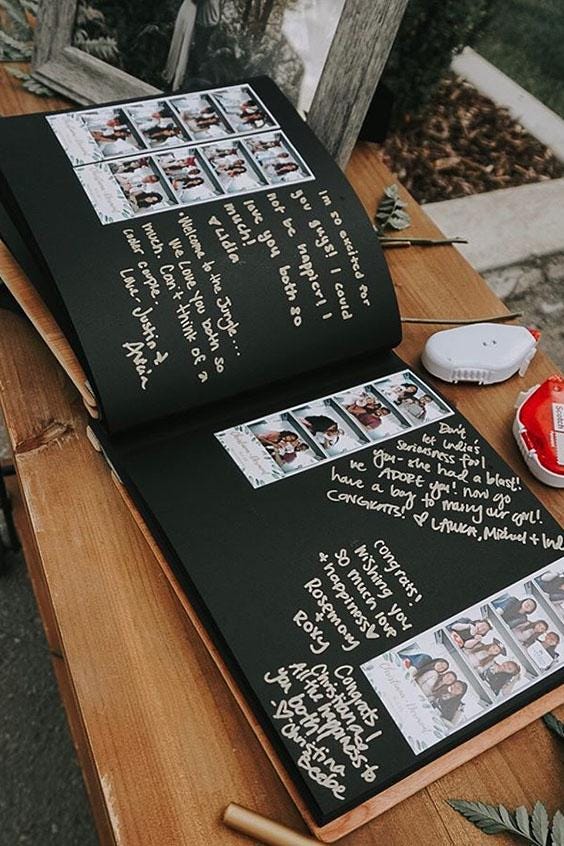 I'm so excited for
you guys! I could
not be happier! I
love you both so
much!
♥ Lidia
Welcome to the Jungle...
We Love you both so
much. Can't think of a
cooler couple.
Love Justin +
Don't
let India's
seriousness fool
you - she had a blast!
we ADORE you! now go
have a boy to marry our girl!
CONGRATS! ♡ LAURA, Michael + Ind
Congrats!
Wishing you
so much love
+ happiness ♥
Rosemary
+
Roxy
Congrats
All the happiness to
you both!
♡ Christina
Beebe
Christina
Scotch